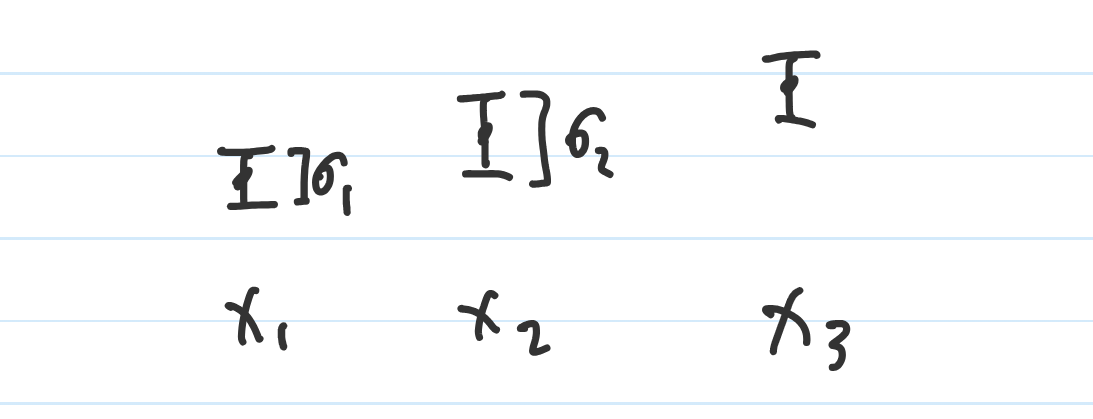 σ₁ σ₂
x₁ x₂ x₃